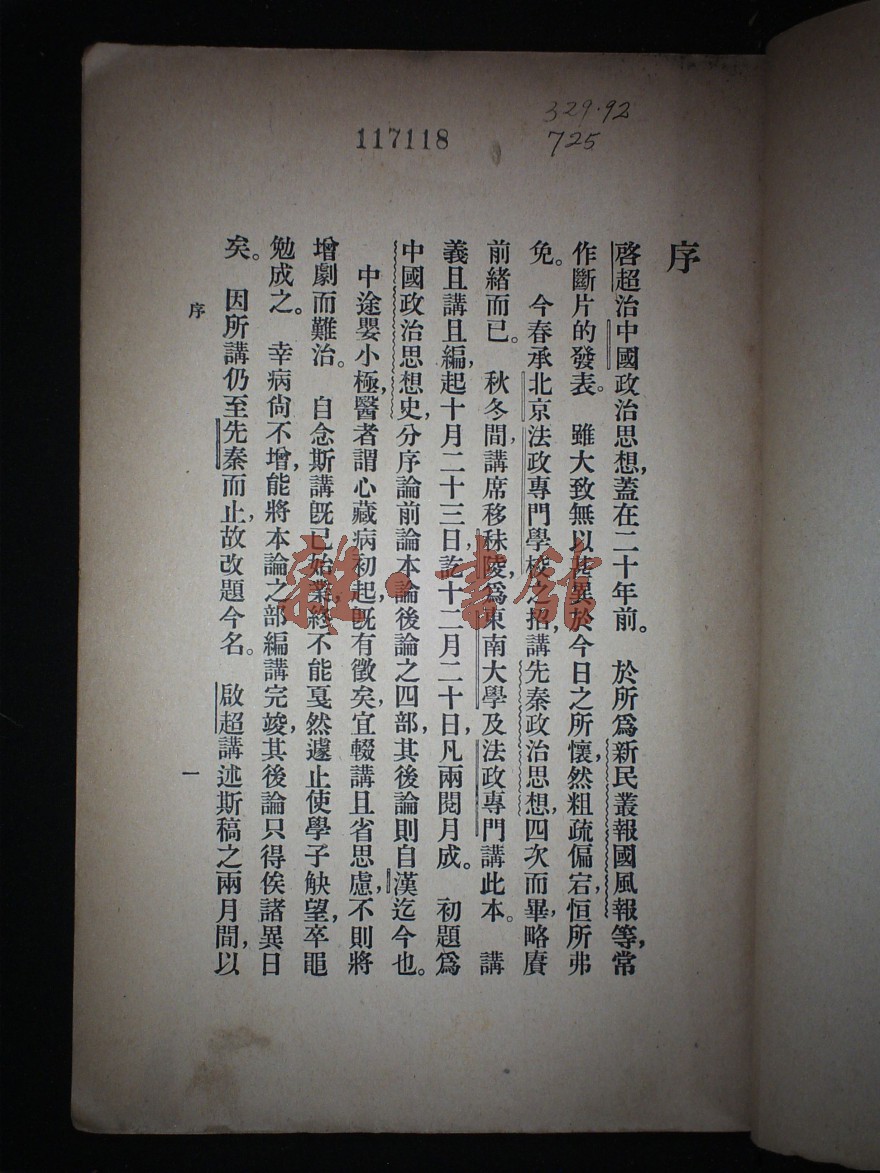 329.92
725
117118
序
啓超治中國政治思想，蓋在二十年前。於所爲新民叢報國風報等，常
作斷片的發表。雖大致無以甚異於今日之所懷，然粗疏偏宕，恒所弗
免。今春承北京法政專門學校之招，講先秦政治思想，四次而畢，略賡
前緒而已。秋冬間，講席移秣陵，爲東南大學及法政專門講此本。講
義且講且編，起十月二十三日，訖十二月二十日，凡兩閱月成。初題爲
中國政治思想史，分序論前論本論後論之四部，其後論則自漢迄今也。
中途嬰小極，醫者謂心藏病初起，旣有徵矣，宜輟講且省思慮，不則將
增劇而難治。自念斯講旣已始業，終不能戛然遽止使學子觖望，卒黽
勉成之。幸病尙不增，能將本論之部編講完竣，其後論只得俟諸異日
矣。因所講仍至先秦而止，故改題今名。啟超講述斯稿之兩月間，以
序
一
雜·書館